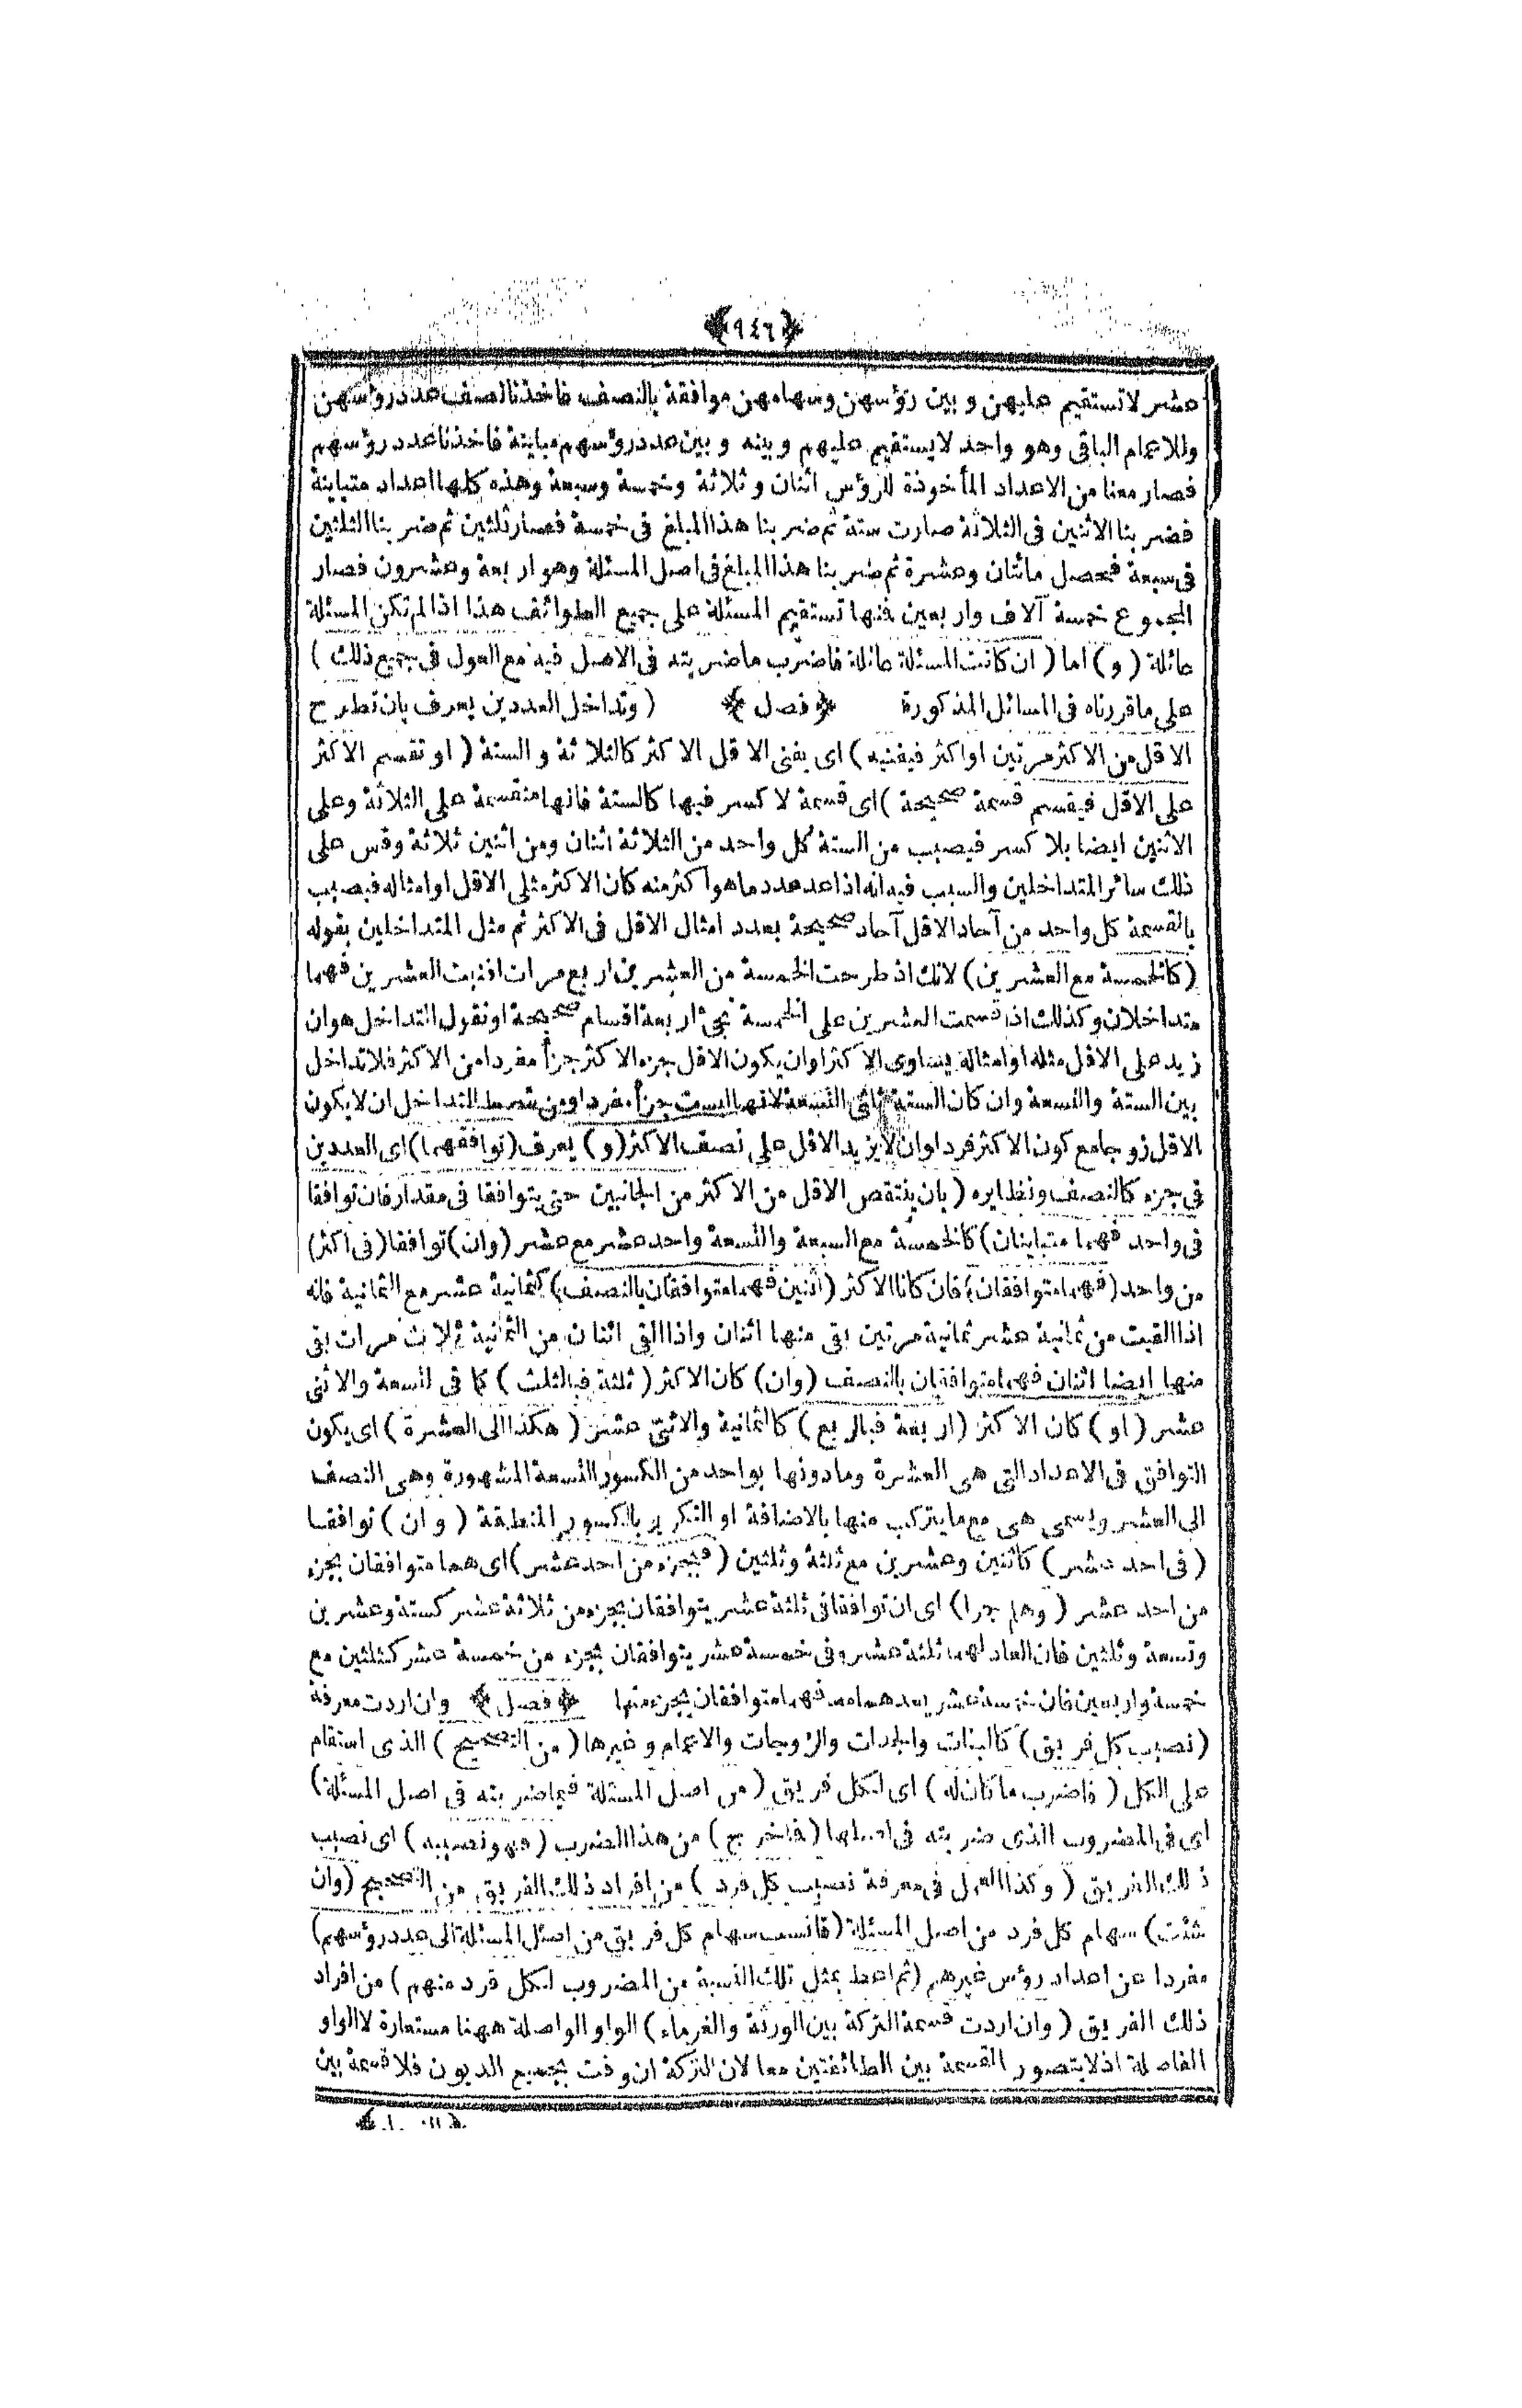 ﴿٩٤٦﴾
عشر لا تستقيم عليهن و بين رؤسهن وسهامهن موافقة بالنصف فاخذنا نصف عدد رؤسهن
وللاعمام الباقى وهو واحد لا يستقيم عليهم وبينه و بين عدد رؤسهم مباينة فاخذنا عدد رؤسهم
فصار معنا من الاعداد المأخوذة للرؤس اثنان و ثلاثة وخمسة وسبعة وهذه كلها اعداد متباينة
فضربنا الاثنين فى الثلاثة صارت ستة ثم ضربنا هذا المبلغ فى خمسة فصار ثلثين ثم ضربنا الثلثين
فى سبعة فحصل مائتان وعشرة ثم ضربنا هذا المبلغ فى اصل المسئلة وهو اربعة وعشرون فصار
المجموع خمسة آلاف واربعين فمنها تستقيم المسئلة على جميع الطوائف هذا اذا لم تكن المسئلة
عائلة ( و ) اما ( ان كانت المسئلة عائلة فاضرب ما ضربته فى الاصل فيه مع العول فى جميع ذلك )
على ما قررناه فى المسائل المذكورة ﴿ فصل ﴾ ( وتداخل العددين يعرف بان تطرح
الاقل من الاكثر مرتين او اكثر فيفنيه ) اى يفنى الاقل الاكثر كالثلاثة و الستة ( او تقسم الاكثر
على الاقل فيقسم قسمة صحيحة ) اى قسمة لا كسر فيها كالستة فانها منقسمة على الثلاثة وعلى
الاثنين ايضا بلا كسر فيصيب من الستة كل واحد من الثلاثة اثنان ومن اثنين ثلاثة وقس على
ذلك سائر المتداخلين والسبب فيه انه اذا عد عدد ما هو اكثر منه كان الاكثر مثلى الاقل او امثاله فيصيب
بالقسمة كل واحد من آحاد الاقل آحاد صحيحة بعدد امثال الاقل فى الاكثر ثم مثل المتداخلين بقوله
( كالخمسة مع العشرين ) لانك اذ طرحت الخمسة من العشرين اربع مرات افنيت العشرين فهما
متداخلان وكذلك اذا قسمت العشرين على الخمسة يجئ اربعة اقسام صحيحة او نقول التداخل هو ان
زيد على الاقل مثله او امثاله يساوى الاكثر او ان يكون الاقل جزء الاكثر جزأ مفردا من الاكثر فلا تداخل
بين الستة والتسعة وان كان الستة ثلثى التسعة لانها ليست جزأ مفردا ومن شرط التداخل ان لا يكون
الاقل زوجا مع كون الاكثر فردا وان لا يزيد الاقل على نصف الاكثر ( و ) يعرف ( توافقهما ) اى العددين
فى جزء كالنصف ونظايره ( بان ينتقص الاقل من الاكثر من الجانبين حتى يتوافقا فى مقدار فان توافقا
فى واحد فهما متباينان ) كالخمسة مع السبعة والتسعة واحد عشر مع عشر ( وان ) توافقا ( فى اكثر )
من واحد ( فهما متوافقان ) فان كانا الاكثر ( اثنين فهما متوافقان بالنصف ) كثمانية عشر مع الثمانية فانه
اذا القيت من ثمانية عشر ثمانية مرتين بقى منها اثنان واذا القى اثنان من الثمانية ثلاث مرات بقى
منها ايضا اثنان فهما متوافقان بالنصف ( وان ) كان الاكثر ( ثلثة فبالثلث ) كما فى التسعة والاثنى
عشر ( او ) كان الاكثر ( اربعة فبالربع ) كالثمانية والاثنى عشر ( هكذا الى العشرة ) اى يكون
التوافق فى الاعداد التى هى العشرة وما دونها بواحد من الكسور التسعة المشهورة وهى النصف
الى العشر ويسمى هى مع ما يتركب منها بالاضافة او التكرير بالكسور المنطقة ( و ان ) توافقا
( فى احد عشر ) كاثنين وعشرين مع ثلثة وثلثين ( فبجزء من احد عشر ) اى هما متوافقان بجزء
من احد عشر ( وهلم جرا ) اى ان توافقا فى ثلثة عشر يتوافقان بجزء من ثلاثة عشر كستة وعشرين
وتسعة وثلثين فان العاد لهما ثلثة عشر وفى خمسة عشر يتوافقان بجزء من خمسة عشر كثلثين مع
خمسة واربعين فان خمسة عشر يعدهما معه فهما متوافقان بجزء منها ﴿ فصل ﴾ وان اردت معرفة
( نصيب كل فريق ) كالبنات والجدات والزوجات والاعمام و غيرها ( من التصحيح ) الذى استقام
على الكل ( فاضرب ما كان له ) اى لكل فريق ( من اصل المسئلة فيما ضربته فى اصل المسئلة )
اى فى المضروب الذى ضربته فى اصلها ( فاخرج ) من هذا الضرب ( فهو نصيبه ) اى نصيب
ذلك الفريق ( وكذا العمل فى معرفة نصيب كل فرد ) من افراد ذلك الفريق من التصحيح ( وان
شئت ) سهام كل فرد من اصل المسئلة ( فانسب سهام كل فريق من اصل المسئلة الى عدد رؤسهم )
مفردا عن اعداد رؤس غيرهم ( ثم اعط بمثل تلك النسبة من المضروب لكل فرد منهم ) من افراد
ذلك الفريق ( وان اردت قسمة التركة بين الورثة والغرماء ) الواو الواصلة ههنا مستعارة لا الواو
الفاصلة اذ لا يتصور القسمة بين الطائفتين معا لان التركة ان وفت بجميع الديون فلا قسمة بين